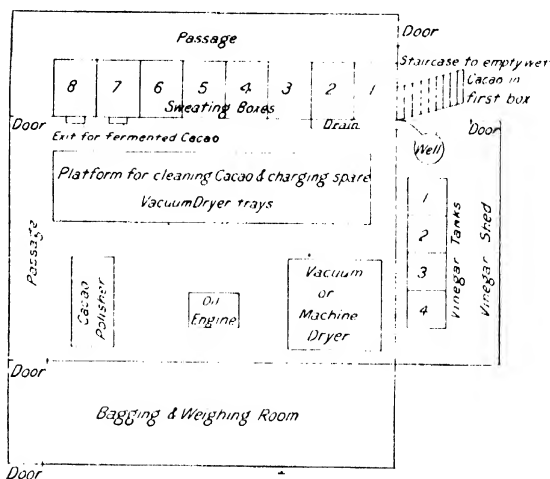 Passage
Door
Staircase to empty wet
Cacao in
first box
8 7 6 5 4 3 2 1
Sweating Boxes
Door
Drain
Door
Exit for fermented Cacao
Well
Platform for cleaning Cacao & charging spare
Vacuum Dryer trays
Passage
Cacao
Polisher
Oil
Engine
Vacuum
or
Machine
Dryer
1
2
3
4
Vinegar Tanks
Vinegar Shed
Door
Bagging & Weighing Room
Door